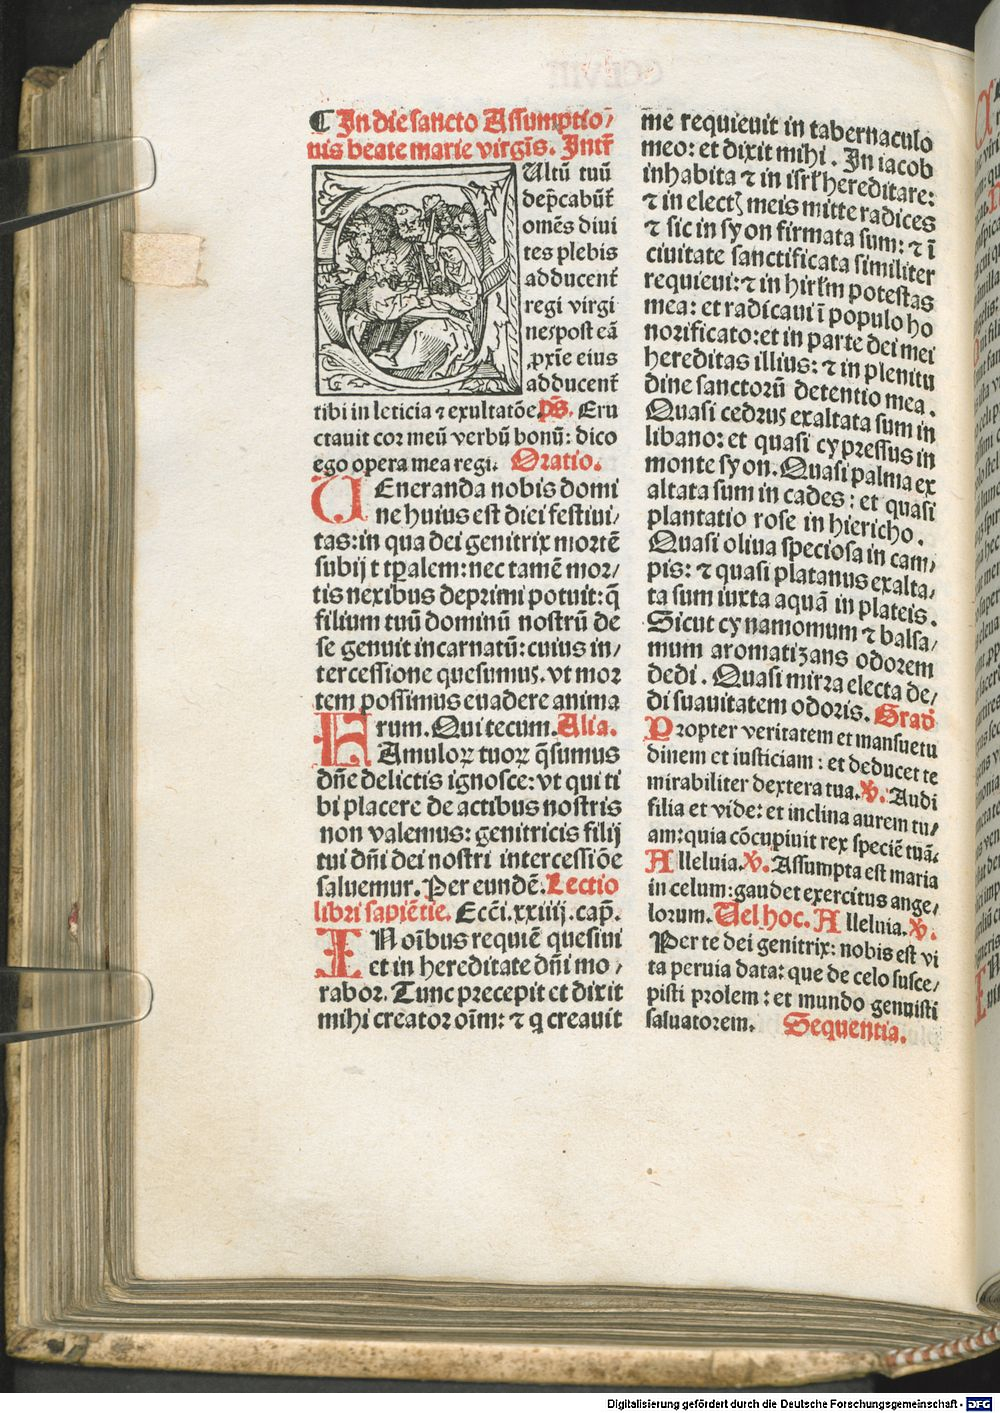 ¶ In die sancto Assumptio/
nis beate marie virgīs. Intr̄
Ultū tuū
dep̄cabūt̄
omēs divi
tes plebis
adducent̄
regi virgi
nes post eā
ꝓxīe eius
adducent̄
tibi in leticia ⁊ exultatōe. p̄s. Eru
ctauit cor meū verbū bonū: dico
ego opera mea regi. Oratio.
VEneranda nobis domi
ne huius est diei festiui/
tas: in qua dei genitrix mortē
subijt tp̄alem: nec tamē mor/
tis nexibus deprimi potuit: q̄
filium tuū dominū nostrū de
se genuit incarnatū: cuius in/
tercessione quesumꝰ. vt mor
tem possimus euadere anima
rum. Qui tecum. Alia.
FAmuloꝝ tuoꝝ q̄sumus
dn̄e delictis ignosce: vt qui ti
bi placere de actibus nostris
non valemus: genitricis filij
tui dn̄i dei nostri intercessiōe
saluemur. Per eundē. Lectio
libri sapiētie. Ecc̄i. xxiiij. cap̄.
IN oībus requiē quesiui
et in hereditate dn̄i mo/
rabor. Tunc precepit et dixit
mihi creator oīm: ⁊ q creauit
me requieuit in tabernaculo
meo: et dixit mihi. In iacob
inhabita ⁊ in isrl̄ hereditare:
⁊ in electꝭ meis mitte radices
⁊ sic in syon firmata sum: ⁊ ī
ciuitate sanctificata similiter
requieui: ⁊ in hirlm̄ potestas
mea: et radicaui ī populo ho
norificato: et in parte dei mei
hereditas illius: ⁊ in plenitu
dine sanctorū detentio mea.
Quasi cedrus exaltata sum in
libano: et quasi cypressus in
monte syon. Quasi palma ex
altata sum in cades: et quasi
plantatio rose in hiericho.
Quasi oliua speciosa in cam/
pis: ⁊ quasi platanus exalta/
ta sum iuxta aquā in plateis.
Sicut cynamomum ⁊ balsa/
mum aromatizans odorem
dedi. Quasi mirra electa de/
di suauitatem odoris. Grad̄
Propter veritatem et mansuetu
dinem et iusticiam: et deducet te
mirabiliter dextera tua. ℣. Audi
filia et vide: et inclina aurem tu/
am: quia cōcupiuit rex speciē tuā.
Alleluia. ℣. Assumpta est maria
in celum: gaudet exercitus ange/
lorum. Vel hoc. Alleluia. ℣.
Per te dei genitrix: nobis est vi
ta peruia data: que de celo susce/
pisti prolem: et mundo genuisti
saluatorem. Sequentia.
Digitalisierung gefördert durch die Deutsche Forschungsgemeinschaft - DFG